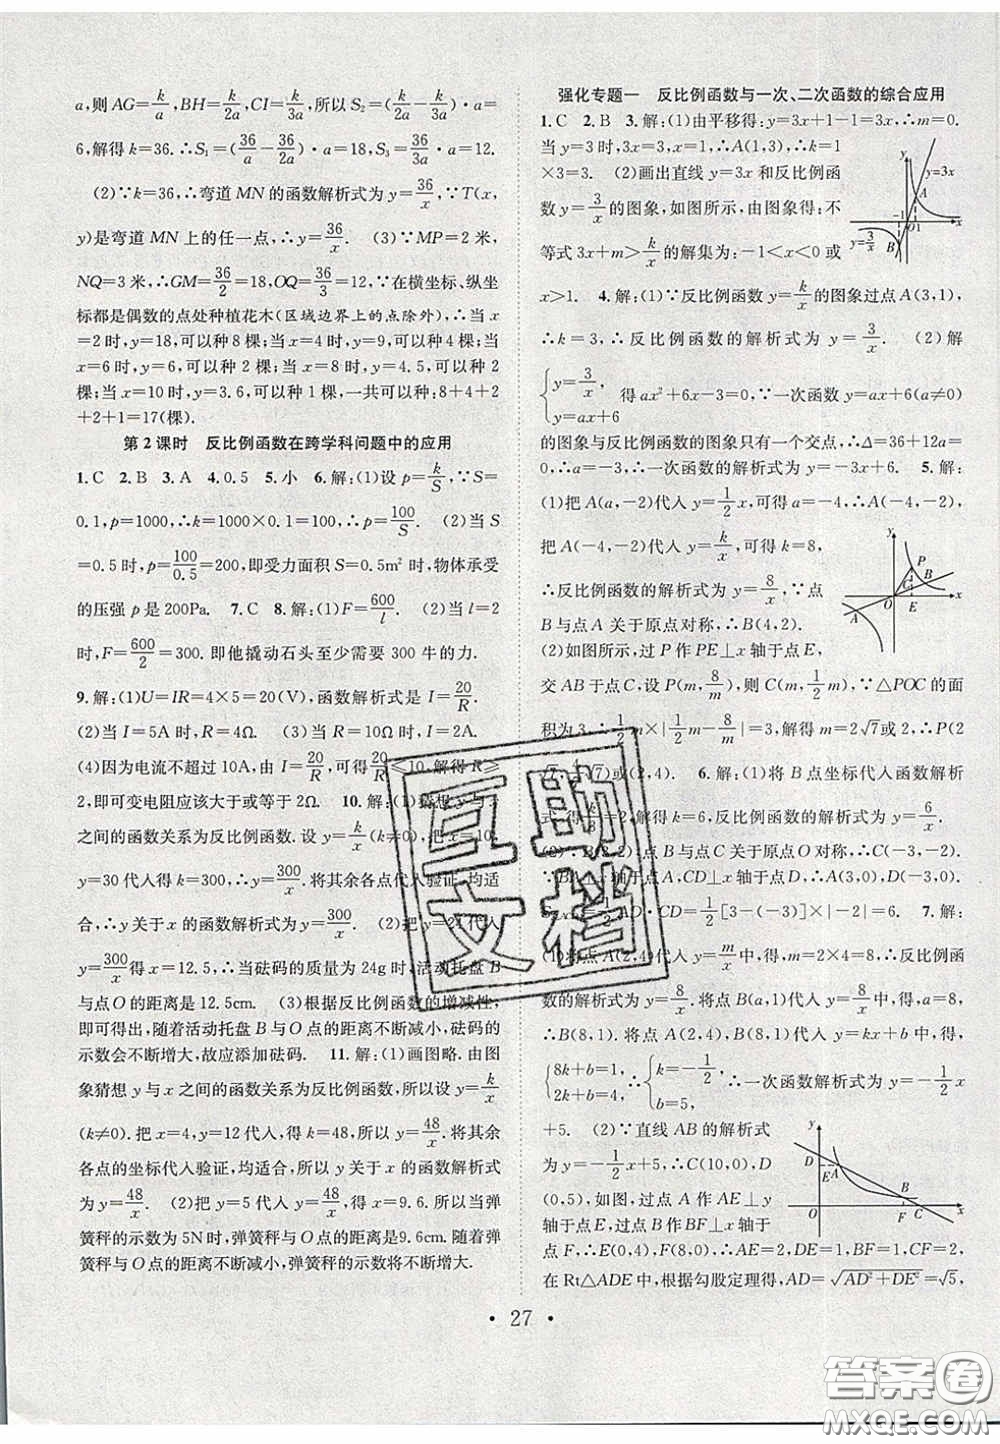 a,则AG=k/a,BH=k/2a,CI=k/3a,所以S₂=(k/2a-k/3a)·a=
6,解得k=36.∴S₁=(36/a-36/2a)·a=18,S₃=36/3a·a=12.
(2)∵k=36,∴弯道MN的函数解析式为y=36/x.∵T(x,
y)是弯道MN上的任一点,∴y=36/x. (3)∵MP=2米,
NQ=3米,∴GM=36/2=18,OQ=36/3=12.∵在横坐标、纵坐
标都是偶数的点处种植花木(区域边界上的点除外),∴当x
=2时,y=18,可以种8棵;当x=4时,y=9,可以种4棵;当
x=6时,y=6,可以种2棵;当x=8时,y=4.5,可以种2
棵;当x=10时,y=3.6,可以种1棵,一共可以种:8+4+
2+2+1=17(棵).
第2课时 反比例函数在跨学科问题中的应用
1.C 2.B 3.A 4.0.5 5.小 6.解:(1)设p=k/S,∵S=
0.1,p=1000,∴k=1000×0.1=100,∴p=100/S. (2)当S
=0.5时,p=100/0.5=200,即受力面积S=0.5m²时,物体承受
的压强p是200Pa. 7.C 8.解:(1)F=600/l. (2)当l=2
时,F=600/2=300.即他撬动石头至少需要300牛的力.
9.解:(1)U=IR=4×5=20(V),函数解析式是I=20/R.
(2)当I=5A时,R=4Ω. (3)当R=10Ω时,I=2A.
(4)因为电流不超过10A,由I=20/R,可得20/R≤10,解得R≥
2,即可变电阻应该大于或等于2Ω. 10.解:(1)猜想y与x
之间的函数关系为反比例函数.设y=k/x(k≠0),把x=10,
y=30代入得k=300,∴y=300/x.将其余各点代入验证,均适
合,∴y关于x的函数解析式为y=300/x. (2)把y=24代入
y=300/x得x=12.5,∴当砝码的质量为24g时,活动托盘B
与点O的距离是12.5cm. (3)根据反比例函数的增减性,
即可得出,随着活动托盘B与O点的距离不断减小,砝码的
示数会不断增大,故应添加砝码. 11.解:(1)画图略.由图
象猜想y与x之间的函数关系为反比例函数,所以设y=k/x
(k≠0).把x=4,y=12代入,得k=48,所以y=48/x.将其余
各点的坐标代入验证,均适合,所以y关于x的函数解析式
为y=48/x. (2)把y=5代入y=48/x,得x=9.6.所以当弹
簧秤的示数为5N时,弹簧秤与O点的距离是9.6cm.随着
弹簧秤与O点的距离不断减小,弹簧秤的示数将不断增大.
强化专题一 反比例函数与一次、二次函数的综合应用
1.C 2.B 3.解:(1)由平移得:y=3x+1-1=3x,∴m=0.
当y=3时,3x=3,x=1,∴A(1,3),∴k=1
×3=3. (2)画出直线y=3x和反比例函
数y=3/x的图象,如图所示,由图象得:不
等式3x+m>k/x的解集为:-1<x<0或
x>1. 4.解:(1)∵反比例函数y=k/x的图象过点A(3,1),
∴k=3,∴反比例函数的解析式为y=3/x. (2)解
{y=3/x, y=ax+6 得ax²+6x-3=0,∵一次函数y=ax+6(a≠0)
的图象与反比例函数的图象只有一个交点,∴Δ=36+12a=
0,∴a=-3,∴一次函数的解析式为y=-3x+6. 5.解:
(1)把A(a,-2)代入y=1/2x,可得a=-4,∴A(-4,-2),
把A(-4,-2)代入y=k/x,可得k=8,
∴反比例函数的解析式为y=8/x,∵点
B与点A关于原点对称,∴B(4,2).
(2)如图所示,过P作PE⊥x轴于点E,
交AB于点C,设P(m,8/m),则C(m,1/2m),∵△POC的面
积为3,∴1/2m×|1/2m-8/m|=3,解得m=2√7或2,∴P(2
√7,4/7√7)或(2,4). 6.解:(1)将B点坐标代入函数解析
式,得k/3=2,解得k=6,反比例函数的解析式为y=6/x.
(2)∵B(3,2),点B与点C关于原点O对称,∴C(-3,-2).
AD·CD=1/2[3-(-3)]×|-2|=6. 7.解:
(1)将点A(2,4)代入y=m/x中,得m=8,∴反比例函
数的解析式为y=8/x.将点B(n,1)代入y=8/x中,得n=8,
∴B(8,1).将点A(2,4),B(8,1)代入y=kx+b中,得,
{8k+b=1, 2k+b=4, ∴{k=-1/2, b=5, ∴一次函数解析式为y=-1/2x
+5. (2)∵直线AB的解析式为
y=-1/2x+5,∴C(10,0),D
(0,5),如图,过点A作AE⊥y
轴于点E,过点B作BF⊥x轴于
点F,∴E(0,4),F(8,0),∴AE=2,DE=1,BF=1,CF=2,
在Rt△ADE中,根据勾股定理得,AD=√(AD²+DE²)=√5,
• 27 •
答案圈
MXQE.COM
互助
文档